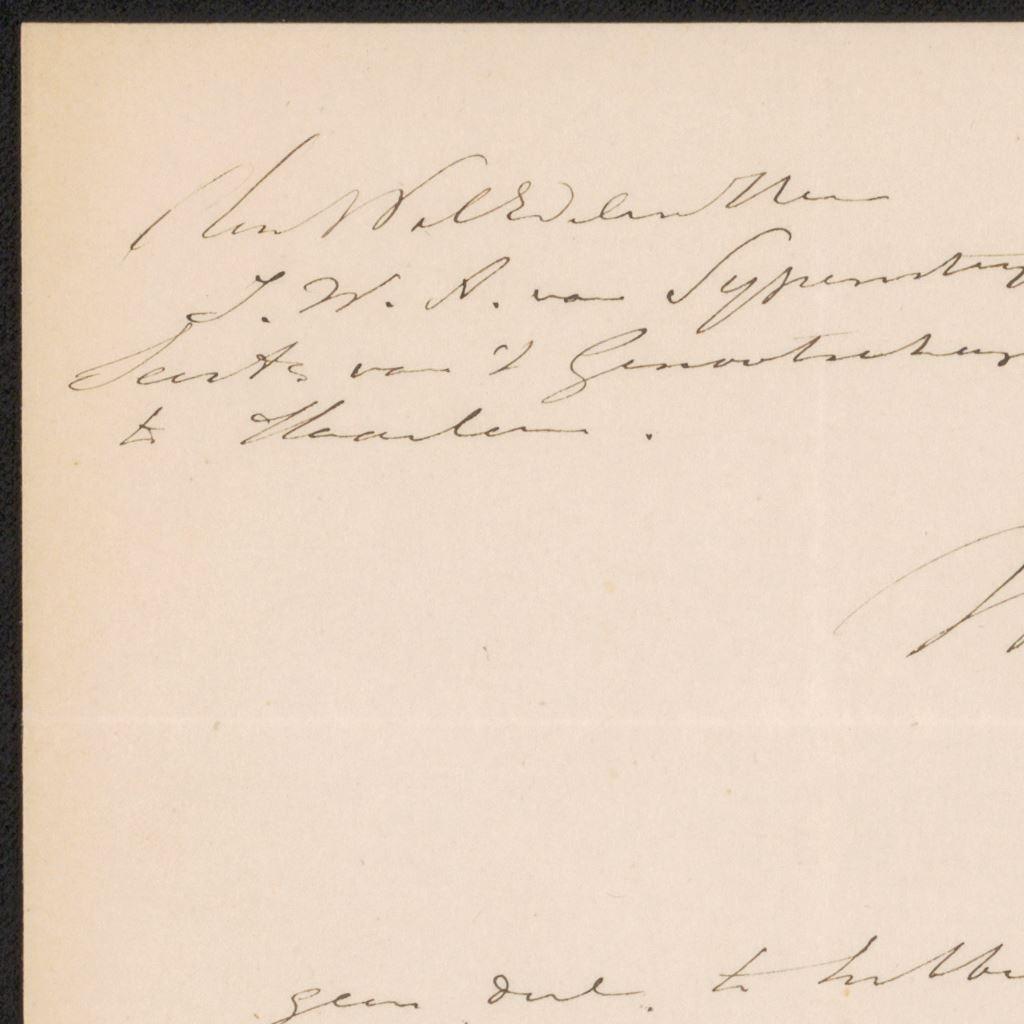 Den WelEdelen Heer
J. W. A. van Sypensteyn
Secrts van 't Genootschap
te Haarlem.
geen deel te hebbe